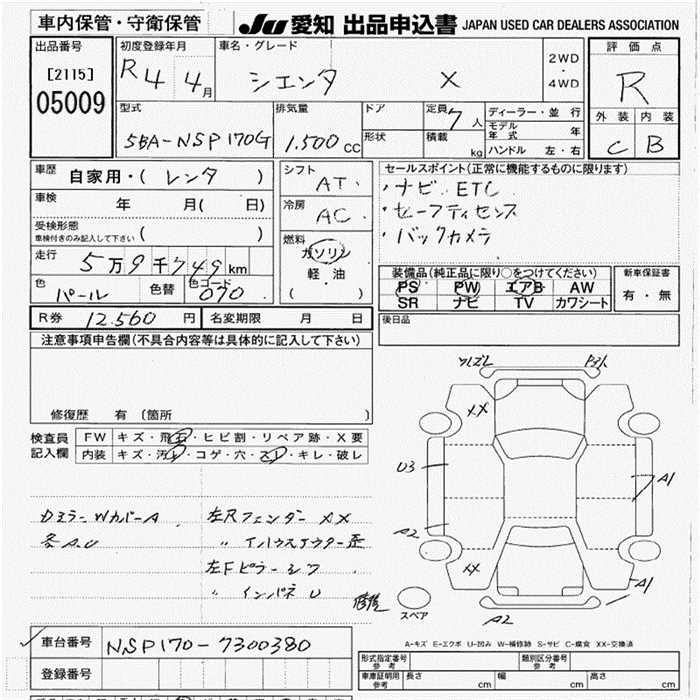 車内保管・守衛保管
JU 愛知 出品申込書 JAPAN USED CAR DEALERS ASSOCIATION
出品番号
[2115]
05009
初度登録年月
R4 4月
車名・グレード
シエンタ X
2WD
・
4WD
評価点
R
外装 内装
C B
型式
5BA-NSP170G
排気量
1,500 CC
ドア
形状
定員 7人
積載 kg
ディーラー・並行
モデル年式 年
ハンドル 左・右
車歴 自家用・( レンタ )
車検 年 月( 日)
受検形態
車検付きのみ記入して下さい ( )
走行 5万9千749km
色 パール 色替 色コード 070
シフト AT
冷房 AC
燃料
ガソリン
軽・油
( )
セールスポイント(正常に機能するものに限ります)
・ナビ ETC
・セーフティセンス
・バックカメラ
装備品(純正品に限り○をつけてください)
PS PW エアB AW
SR ナビ TV カワシート
新車保証書
有・無
R券 12,560円 名変期限 月 日
後日品
注意事項申告欄(不具合内容等は具体的に記入して下さい)
修復歴 有 (箇所 )
検査員
記入欄
FW キズ・飛石・ヒビ割・リペア跡・X要
内装 キズ・汚レ・コゲ・穴・スレ・キレ・破レ
ワレズレ
XX
U3
A1
A2
XX
A1
A2
スペア
修復
DミラーWカバーA 左Rフェンダー XX
各A.U 〃 インハウスアウター歪
左Fピラーシワ
〃 インパネU
車台番号 NSP170-7300380
登録番号
A-キズ E-エクボ U-凹み W-補修跡 S-サビ C-腐食 XX-交換済
形式指定番号
参考
類別区分番号
参考
車庫証明用
参考
長さ cm 幅 cm 高さ cm